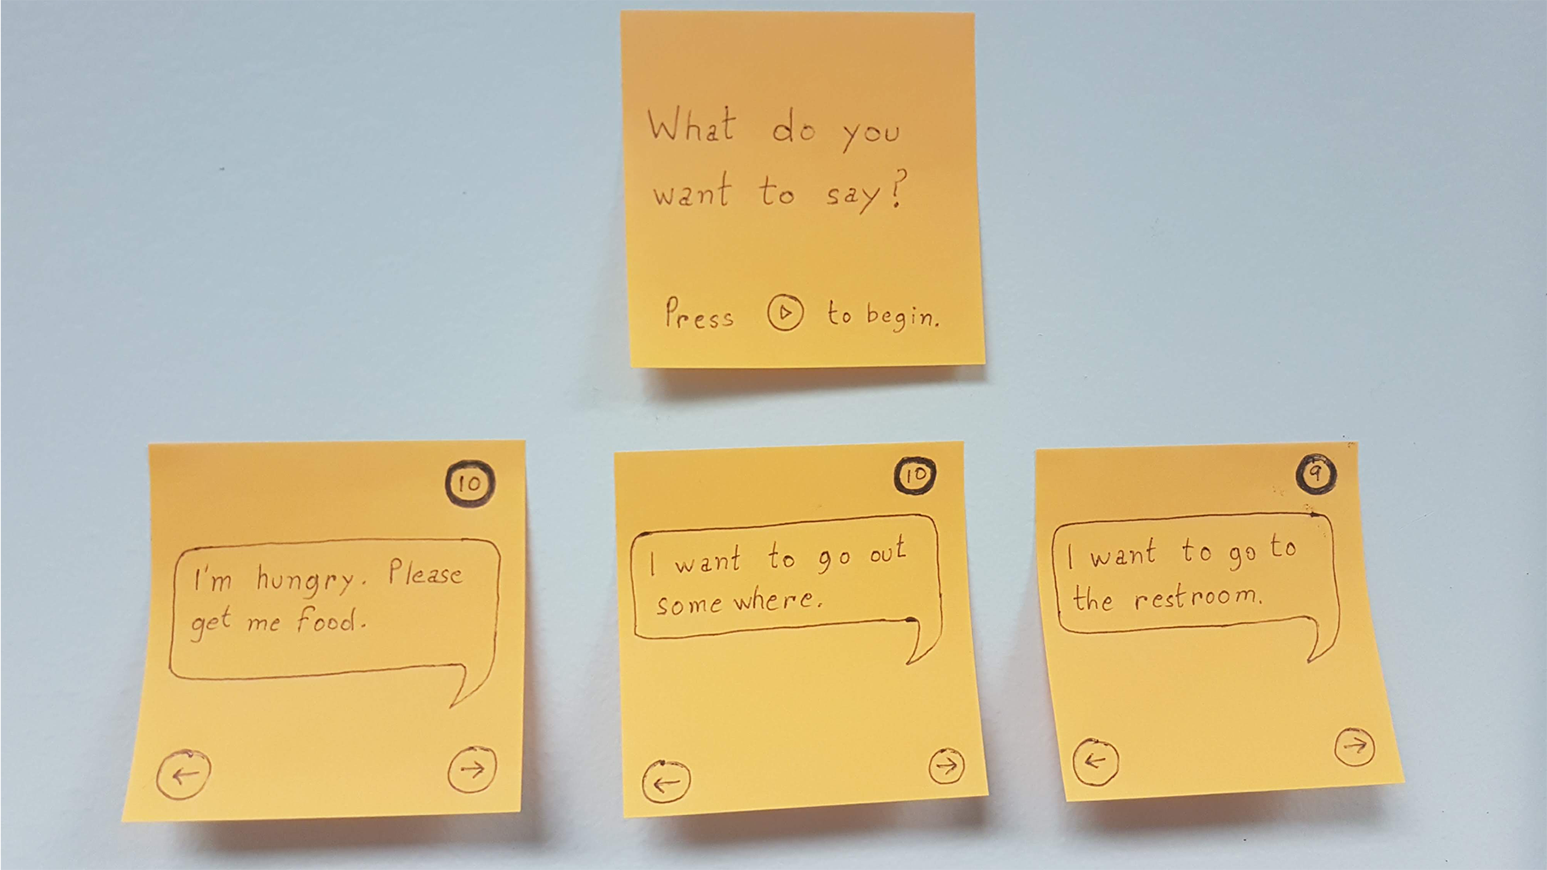 What do you
want to say?
Press ▷ to begin.
10
I'm hungry. Please
get me food.
← →
10
I want to go out
some where.
← →
9
I want to go to
the restroom.
← →